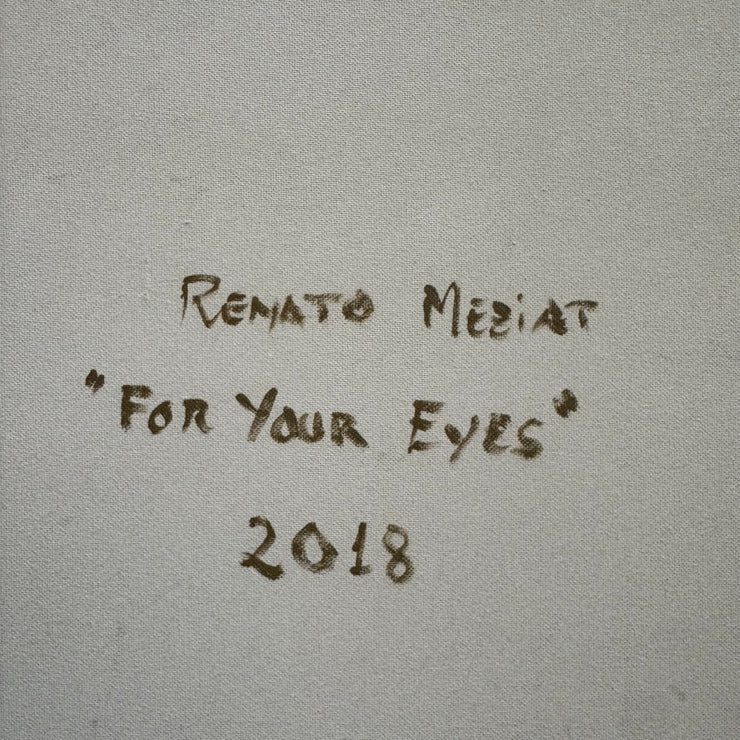 RENATO MEZiAT
"FOR YOUR EYES"
2018